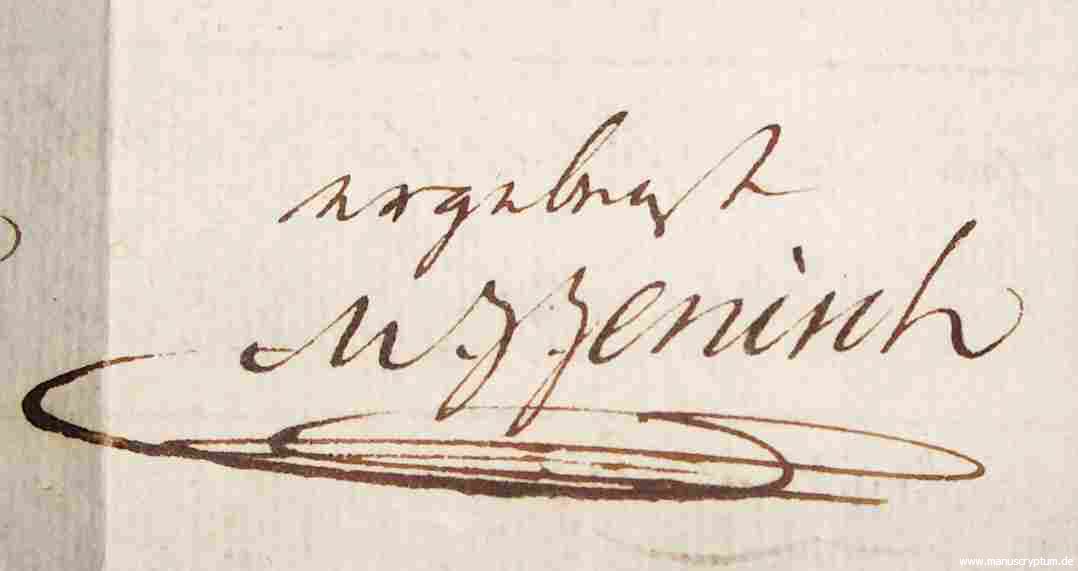 ergebenst
MJJenisch
www.manuscryptum.de